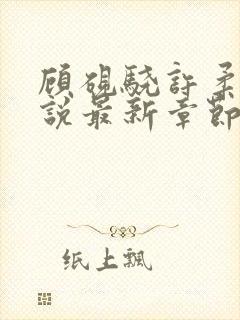 顾砚骁许柔
说最新章节
纸上飘